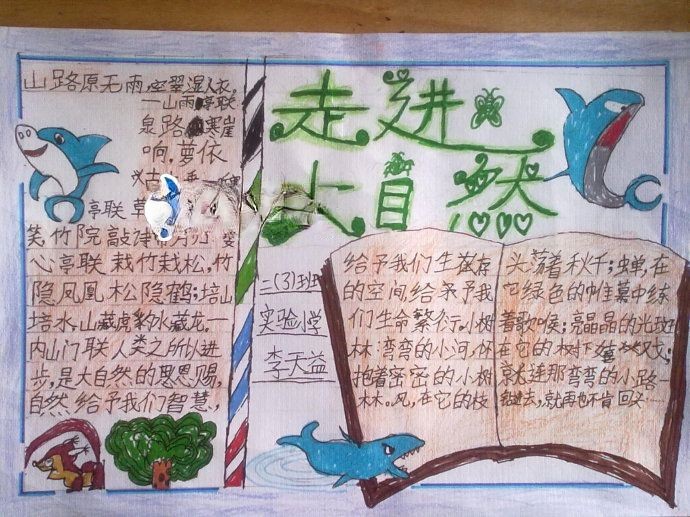 山路原无雨,空翠湿人衣。
一山雨亭联
泉路寒崖
响,萝依
古
亭联
笑,竹院敲
心亭联栽竹栽松,竹
隐凤凰松隐鹤;培山
培水,山藏虎豹水藏龙。一
内山门联人类之所以进
步,是大自然的恩赐,
自然给予我们智慧,
走进
大自然
二(3)班
实验小学
李天益
给予我们生存
的空间,给予我
们生命繁衍。小树
林:弯弯的小河,怀
抱着密密的小树
林。风,在它的枝
头荡着秋千;蝉,在
它绿色的帷幕中练
着歌喉;亮晶晶的光斑
在它的树下
就连那弯弯的小路一
进去,就再也不肯回头……